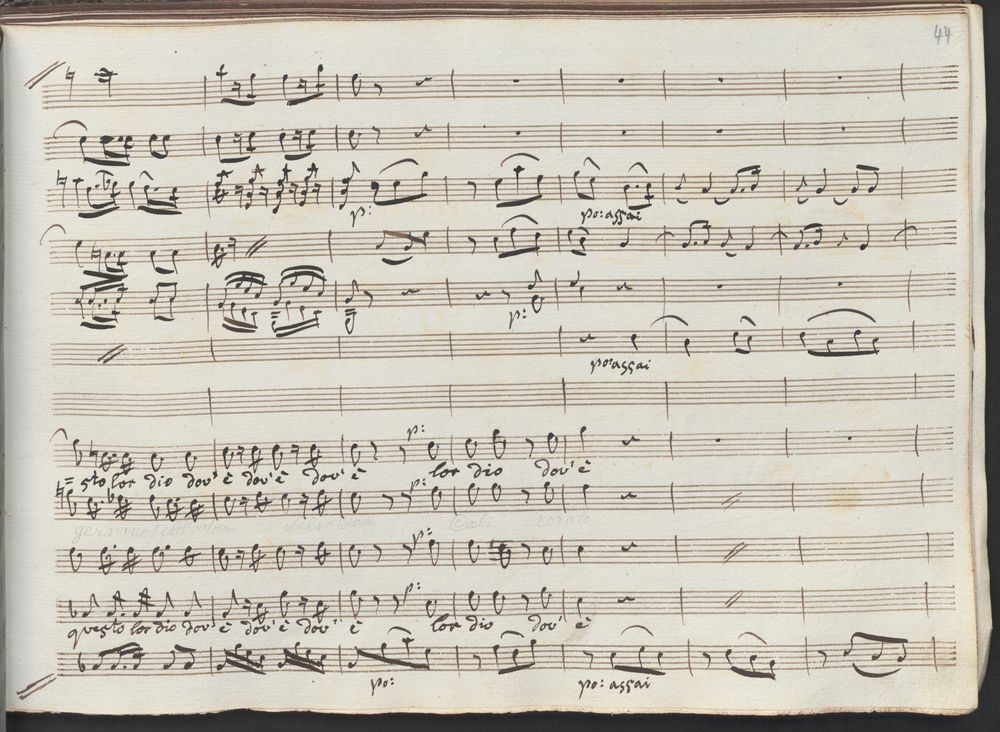 44
p:
po: assai
p:
po: assai
p:
= sto lor dio dov' è dov' è dov' è lor dio dov' è
p:
Coeli rorate
p:
p:
questo lor dio dov' è dov' è dov' è lor dio dov' è
po: po: assai